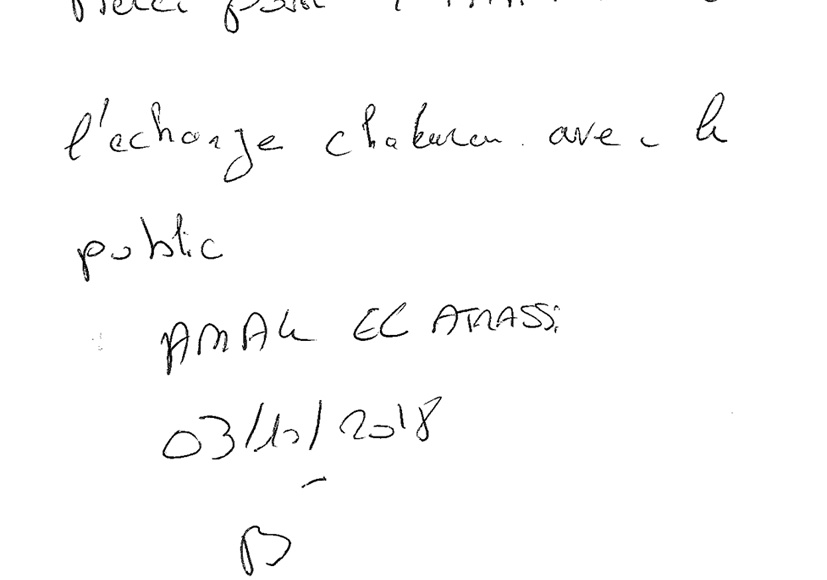 Merci pour l'
l'echange chaleureux avec le
public
AMAL EL ATRASSI
03/10/2018